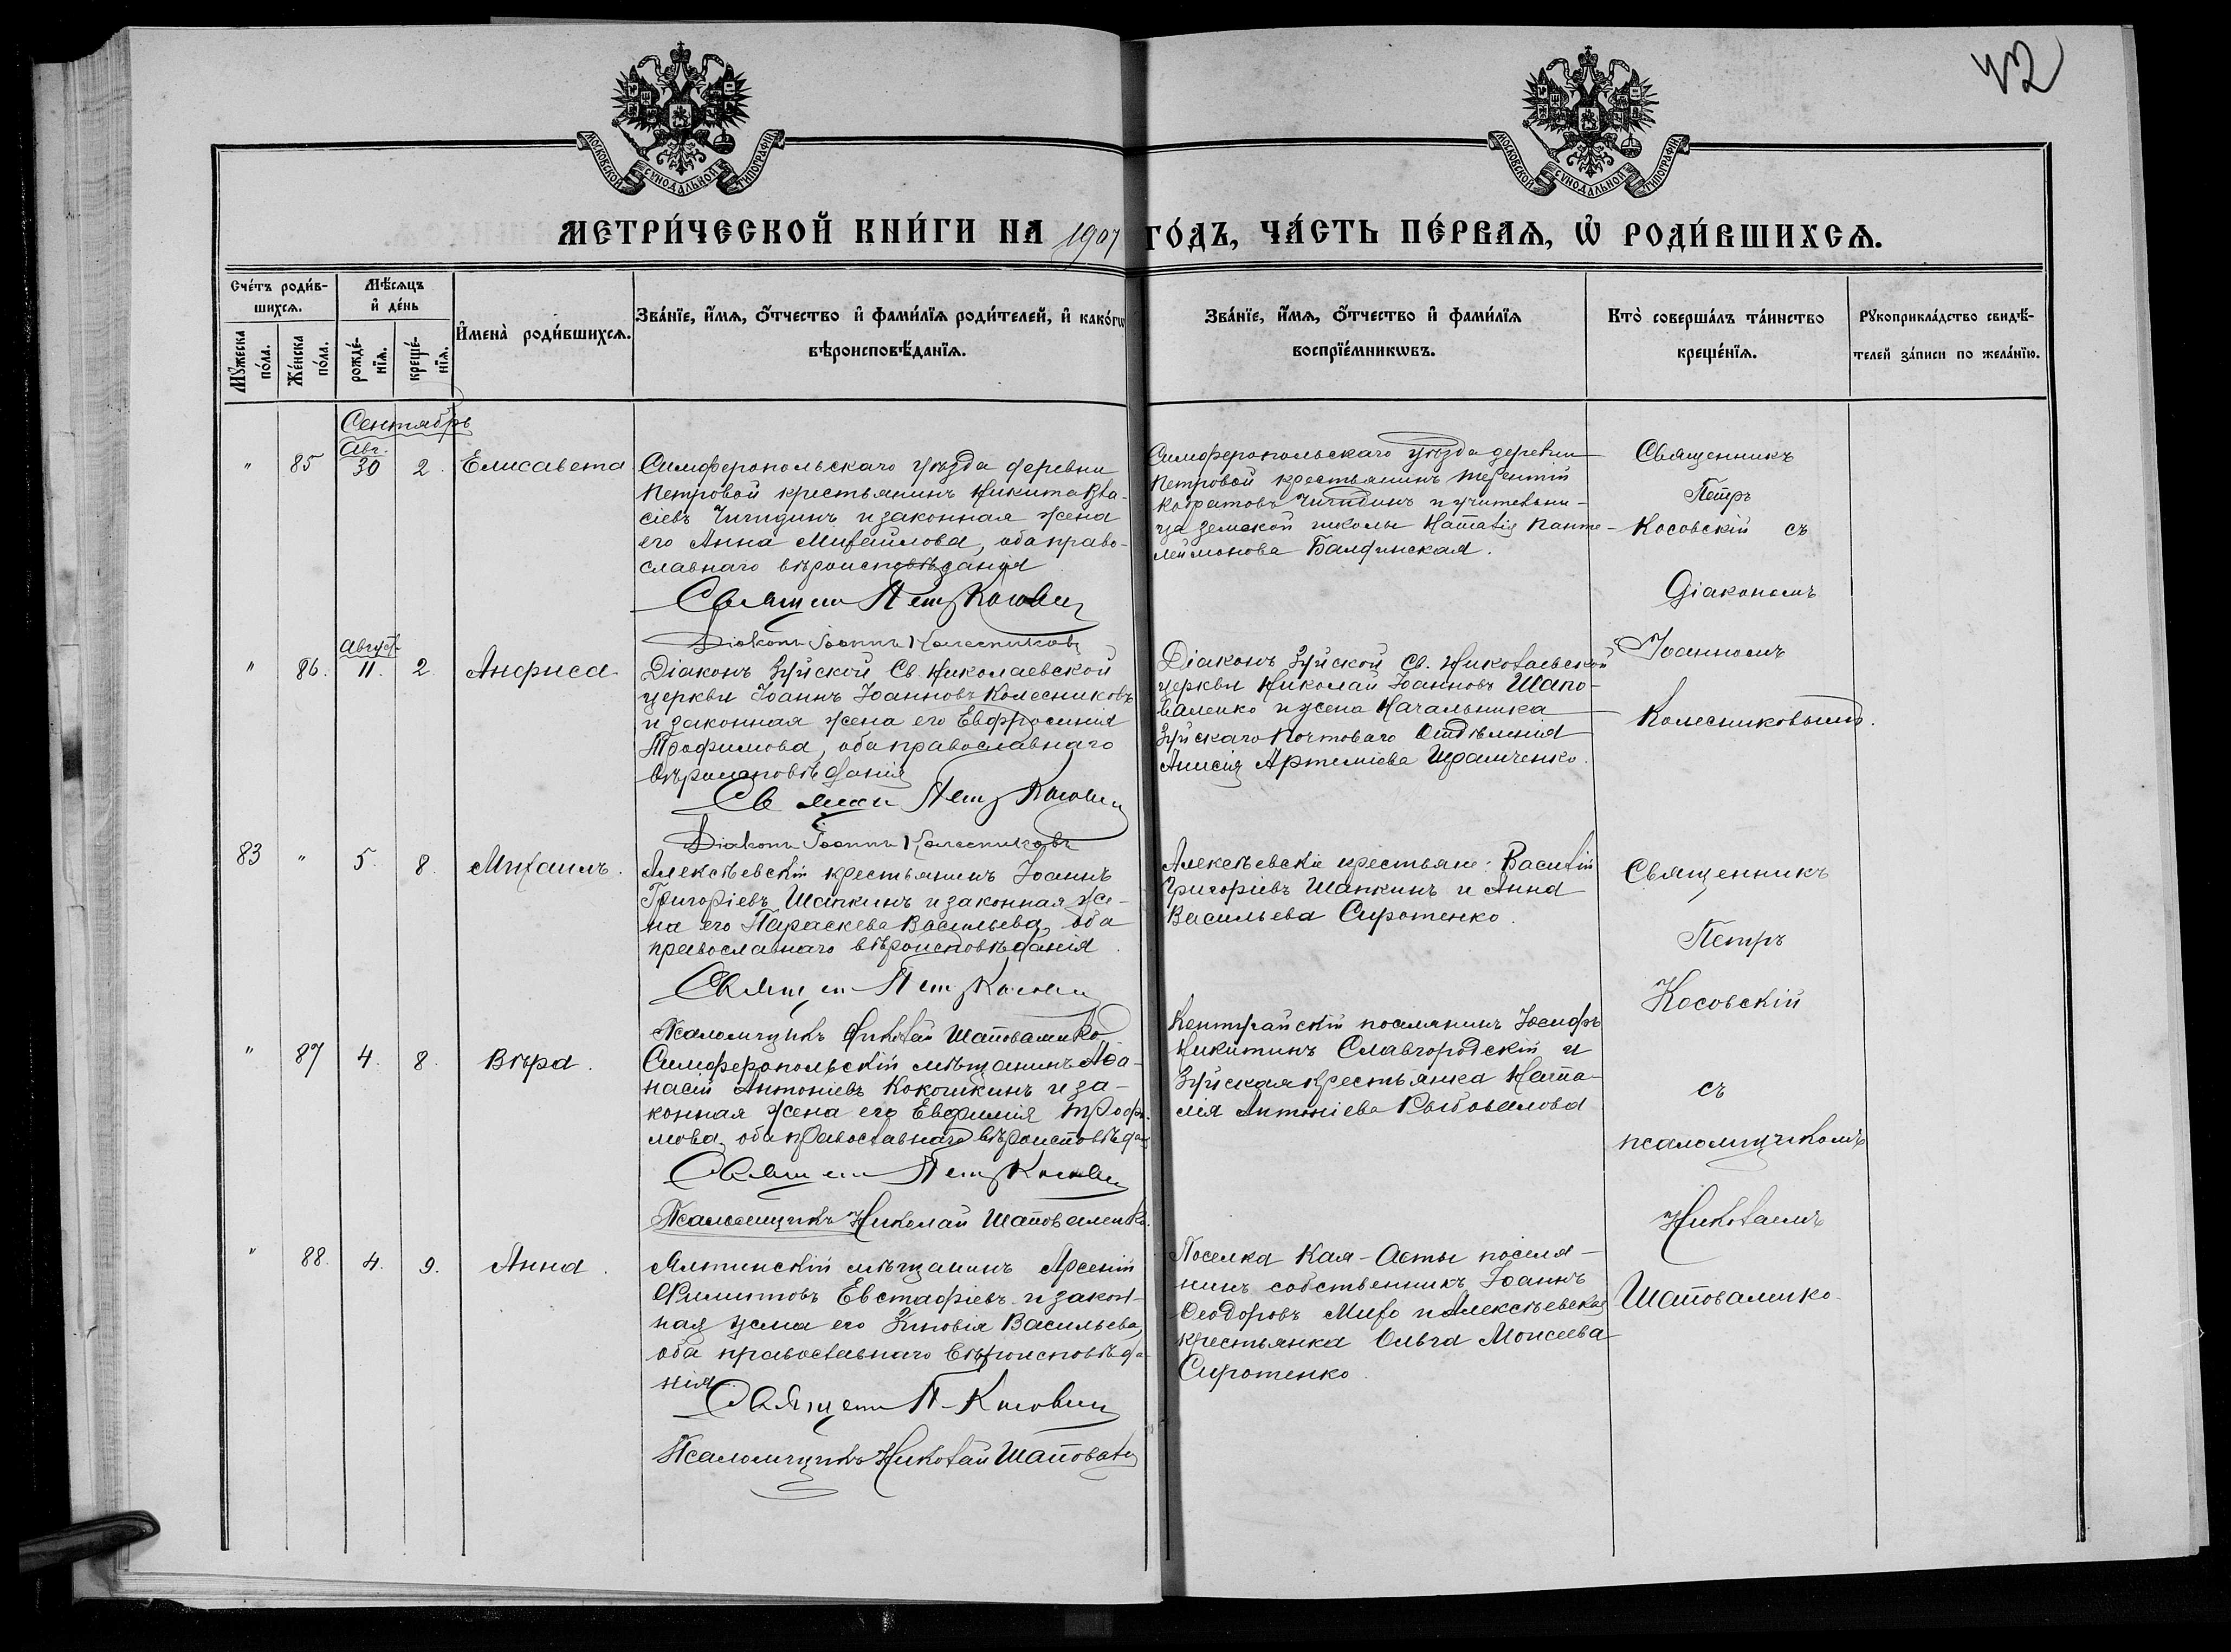 42
МОСКОВСКОЙ СѴНОДАЛЬНОЙ ТИПОГРАФІИ
МОСКОВСКОЙ СѴНОДАЛЬНОЙ ТИПОГРАФІИ
МЕТРИ́ЧЕСКОЙ КНИ́ГИ НА 1907 ГО́ДЪ, ЧА́СТЬ ПЕ́РВАѦ, Ѡ҆ РОДИ́ВШИХСѦ.
Сче́тъ роди́в-
шихсѧ.
Мꙋ́жеска по́ла.
Же́нска по́ла.
Мѣ́сяцъ
и҆ де́нь
рожде́-
нїѧ.
креще́-
нїѧ.
И҆мена̀ роди́вшихсѧ.
Зва́нїе, и҆́мѧ, ѻ҆́тчество и҆ фами́лїѧ роди́телей, и҆ како́гѡ
вѣроисповѣ́данїѧ.
Зва́нїе, и҆́мѧ, ѻ҆́тчество и҆ фами́лїѧ
воспрїе́мникѡвъ.
Кто̀ соверша́лъ та́инство
креще́нїѧ.
Рꙋкоприкла́дство свидѣ́-
телей за́писи по жела́нїю.
Сентябрь
" 85 Авг. 30 2. Елисавета
Симферопольскаго уѣзда деревни
Петровой крестьянинъ Никита Вла-
сіевъ Чигидинъ и законная жена
его Анна Михайлова, оба право-
славнаго вѣроисповѣданія
Священ Петр Косовскій
Діаконъ Іоаннъ Колесниковъ
Симферопольскаго уѣзда деревни
Петровой крестьянинъ Терентій
Чигидинъ и учительни-
ца земской школы Наталія Панте-
леимонова Балдинская.
Священникъ
Петръ
Косовскій съ
Діакономъ
Іоанномъ
Колесниковымъ.
" 86. Август 11. 2. Анфиса
Діаконъ Зуйской Св. Николаевской
церкви Іоаннъ Іоанновъ Колесниковъ
и законная жена его Евфросинія
Трофимова, оба православнаго
вѣроисповѣданія
Священ Петр Косовскій
Діаконъ Іоаннъ Колесниковъ
Діаконъ Зуйской Св. Николаевской
церкви Николай Іоанновъ Шапо-
валенко и жена Начальника
Зуйскаго Почтоваго Отдѣленія
Анисія Артеміева
83 " 5. 8. Михаилъ.
Алексѣевскій крестьянинъ Іоаннъ
Григоріевъ Шапкинъ и законная же-
на его Параскева Васильева, оба
православнаго вѣроисповѣданія.
Священ Петр Косовскій
Псаломщикъ Николай Шаповаленко
Алексѣевскіе крестьяне: Василій
Григоріевъ Шапкинъ и Анна
Васильева Сиротенко.
Священникъ
Петръ
Косовскій
съ
псаломщикомъ
Николаемъ
Шаповаленко
" 87 4. 8. Вѣра.
Симферопольскій мѣщанинъ Аѳа-
насій Антоніевъ Кокошкинъ и за-
конная жена его Евфимія Трофи-
мова, оба православнаго вѣроисповѣдан
Священ Петр Косовскій
Псаломщикъ Николай Шаповаленко.
поселянинъ Іосифъ
Никитинъ Славгородскій и
Зуйская крестьянка Ната-
лія Антоніева
" 88. 4. 9. Анна.
Ялтинскій мѣщанинъ Арсеній
Филиповъ Евстафіевъ и закон-
ная жена его Зиновія Васильева,
оба православнаго вѣроисповѣда-
нія.
Священ П. Косовскій
Псаломщикъ Николай Шаповал
Поселка Кая-Асты поселя-
нинъ собственникъ Іоаннъ
Ѳеодоровъ Михо и Алексѣевская
крестьянка Ольга Моисеева
Сиротенко.